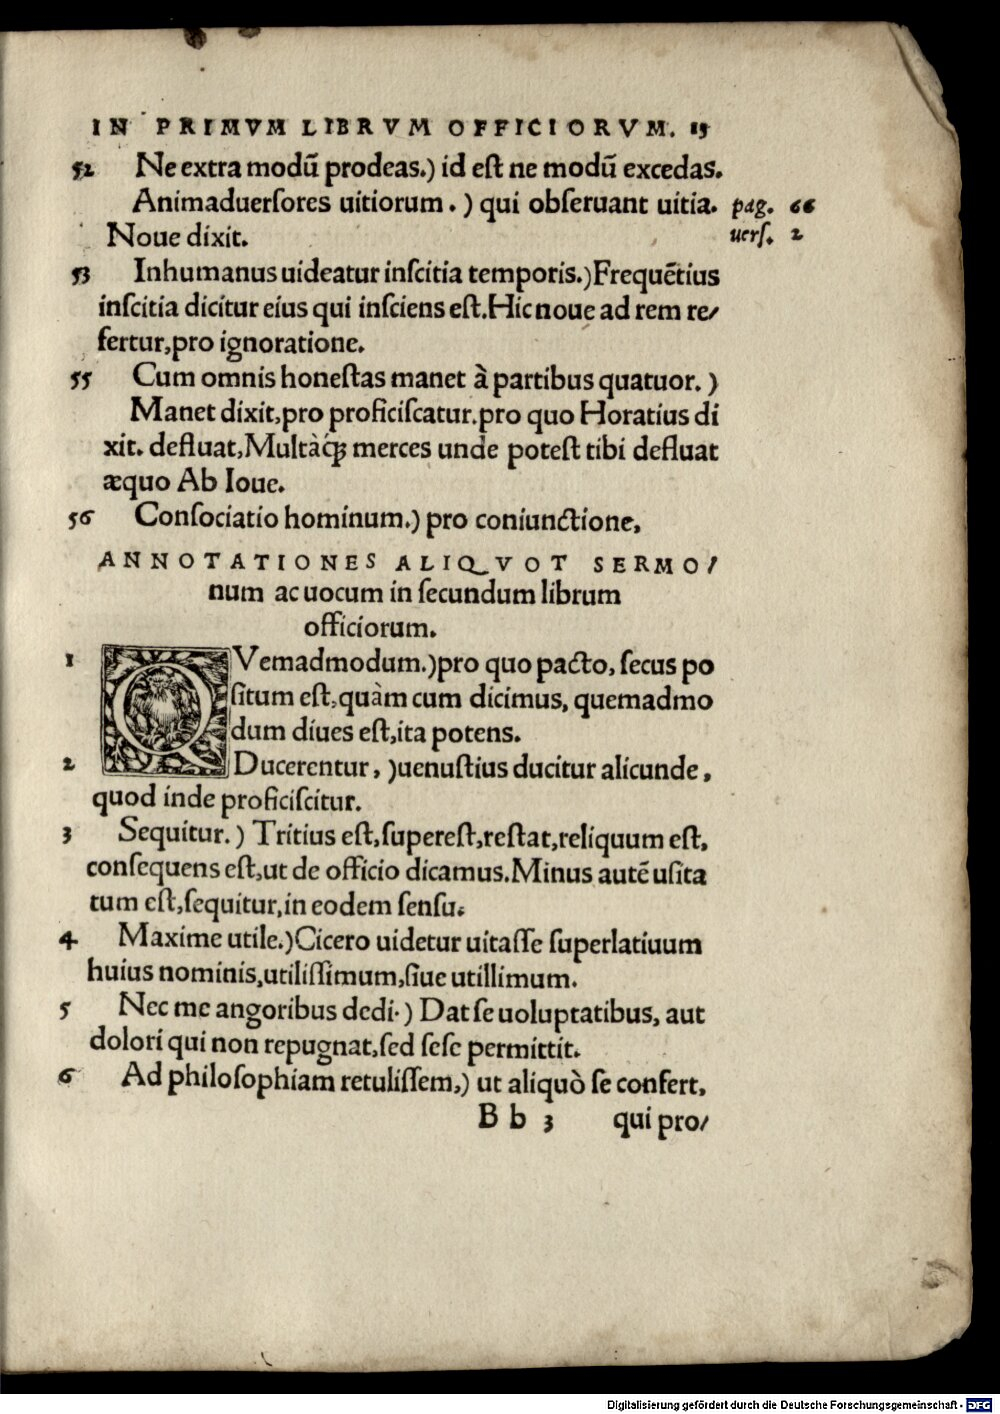 IN PRIMVM LIBRVM OFFICIORVM. 15
52 Ne extra modū prodeas.) id eſt ne modū excedas.
Animaduerſores uitiorum.) qui obſeruant uitia. pag. 66
Noue dixit. uerſ. 2
53 Inhumanus uideatur inſcitia temporis.) Frequētius
inſcitia dicitur eius qui inſciens eſt. Hic noue ad rem re/
fertur, pro ignoratione.
55 Cum omnis honeſtas manet à partibus quatuor.)
Manet dixit, pro proficiſcatur. pro quo Horatius di
xit. defluat, Multàq́ꝫ merces unde poteſt tibi defluat
æquo Ab Ioue.
56 Conſociatio hominum.) pro coniunctione,
ANNOTATIONES ALIQVOT SERMO/
num ac uocum in ſecundum librum
officiorum.
1 QVemadmodum.) pro quo pacto, ſecus po
ſitum eſt, quàm cum dicimus, quemadmo
dum diues eſt, ita potens.
2 Ducerentur,) uenuſtius ducitur alicunde,
quod inde proficiſcitur.
3 Sequitur.) Tritius eſt, ſupereſt, reſtat, reliquum eſt,
conſequens eſt, ut de officio dicamus. Minus autē uſita
tum eſt, ſequitur, in eodem ſenſu.
4 Maxime utile.) Cicero uidetur uitaſſe ſuperlatiuum
huius nominis, utiliſſimum, ſiue utillimum.
5 Nec me angoribus dedi.) Dat ſe uoluptatibus, aut
dolori qui non repugnat, ſed ſeſe permittit.
6 Ad philoſophiam retuliſſem,) ut aliquò ſe confert,
B b 3 qui pro/
Digitalisierung gefördert durch die Deutsche Forschungsgemeinschaft - DFG